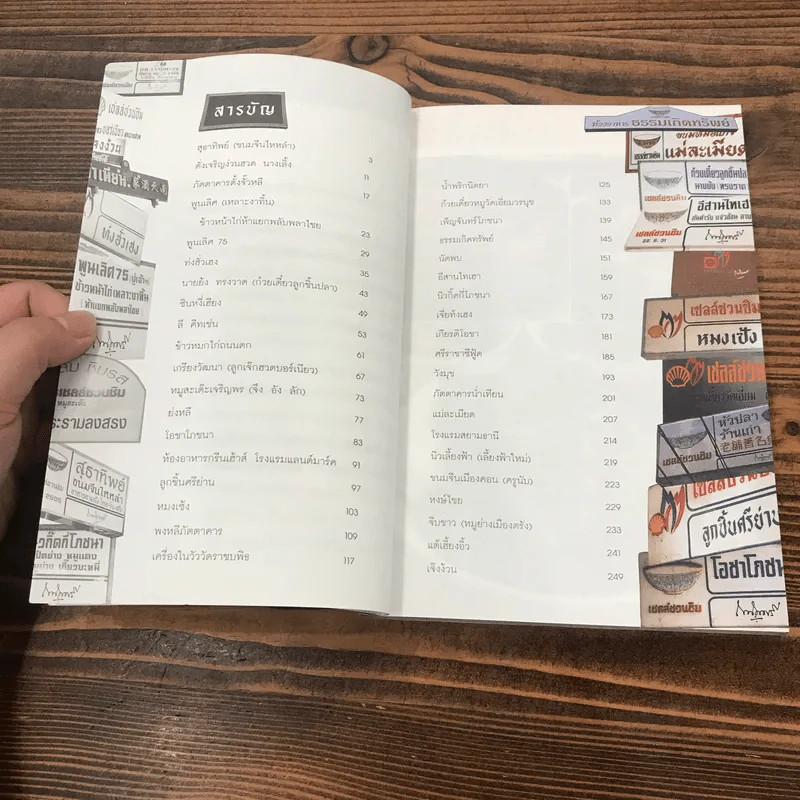 สารบัญ
สุธาทิพย์ (ขนมจีนไหหลำ) 3
ตังเจริญง่วนฮวด นางเลิ้ง 11
ภัตตาคารตั้งจั๊วหลี 17
พูนเลิศ (เหลาะงาทิ้น)
ข้าวหน้าไก่ห้าแยกพลับพลาไชย 23
พูนเลิศ 75 29
ท่งฮั่วเฮง 35
นายย้ง ทรงวาด (ก๋วยเตี๋ยวลูกชิ้นปลา) 43
ซินหงี่เฮียง 49
ลี คิทเช่น 53
ข้าวหมกไก่ถนนตก 61
เกรียงวัฒนา (ลูกเจ๊กฮวดบอร์เนียว) 67
หมูสะเต๊ะเจริญพร (จึง อัง ลัก) 73
ย่งหลี 77
โอชาโภชนา 83
ห้องอาหารกรีนเฮ้าส์ โรงแรมแลนด์มาร์ค 91
ลูกชิ้นศรีย่าน 97
หมงเซ้ง 103
พงหลีภัตตาคาร 109
เครื่องในวัววัดราชบพิธ 117
น้ำพริกนิตยา 125
ก๋วยเตี๋ยวหมูวัดเอี่ยมวรนุช 133
เพ็ญจันทร์โภชนา 139
ธรรมเกิดทรัพย์ 145
นัดพบ 151
อีสานไทเฮา 159
นิวกิ๊กกี่โภชนา 167
เจี่ยท้งเฮง 173
เกียรติโอชา 181
ศรีราชาซีฟู้ด 185
วังมุข 193
ภัตตาคารน่ำเทียน 201
แม่ละเมียด 207
โรงแรมสยามธานี 214
นิวเลี้ยงฟ้า (เลี้ยงฟ้าใหม่) 219
ขนมจีนเมืองคอน (ครูนับ) 223
หงษ์ไชย 229
จีบขาว (หมูย่างเมืองตรัง) 233
แต้เฮี้ยงอิ้ว 241
เจ๊งง้วน 249
ท่งฮั่วเฮง
พูนเลิศ75
ข้าวหน้าไก่ (เหลาะงาทิ้น)
ห้าแยกพลับพลาไชย
เชลล์ชวนชิม
หมูสะเต๊ะ
ระรามลงสรง
สุธาทิพย์
ขนมจีนไหหลำ
วกิ๊กกี่โภชนา
ห้องอาหาร ธรรมเกิดทรัพย์
แม่ละเมียด
ก๋วยเตี๋ยวลูกชิ้นปลา
อีสานไทเฮ
เชลล์ชวนชิม
เชลล์ชวนชิม
หมงเซ้ง
เชลล์ชวน
หัวปลา
ร้านเก่า
เชลล์ชวนชิม
ลูกชิ้นศรีย่าน
โอชาโภชน
เชลล์ชวนชิม